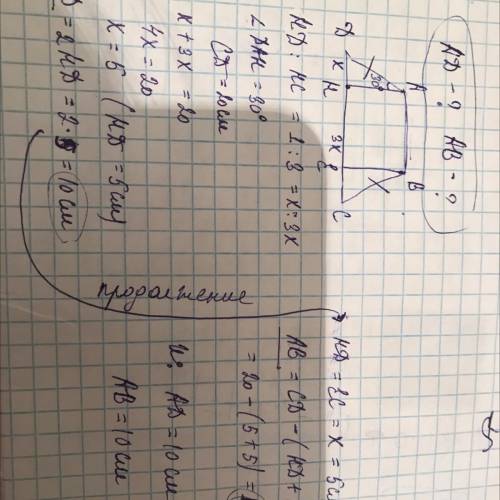 AD - ? AB - ?
A B
D x H 3x E C
30°
HD : HC = 1 : 3 = x : 3x
∠DAH = 30°
CD = 20см
x + 3x = 20
4x = 20
x = 5 (HD = 5см)
= 2HD = 2 · 5 = 10 см
продолжение
HD = EC = x = 5с
AB = CD - (HD +
= 20 - (5 + 5) =
AD = 10 см
AB = 10 см